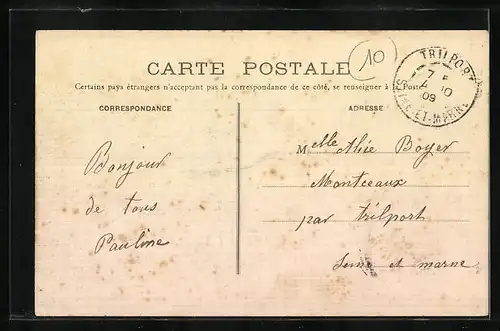 10
CARTE POSTALE
TRILPORT
7 E
4 - 10
09
SEINE-ET-MARNE
Certains pays étrangers n'acceptant pas la correspondance de ce côté, se renseigner à la Poste
CORRESPONDANCE
ADRESSE
Bonjour
de tous
Pauline
Melle Alice Boyer
Montceaux
par trilport
Seine et marne